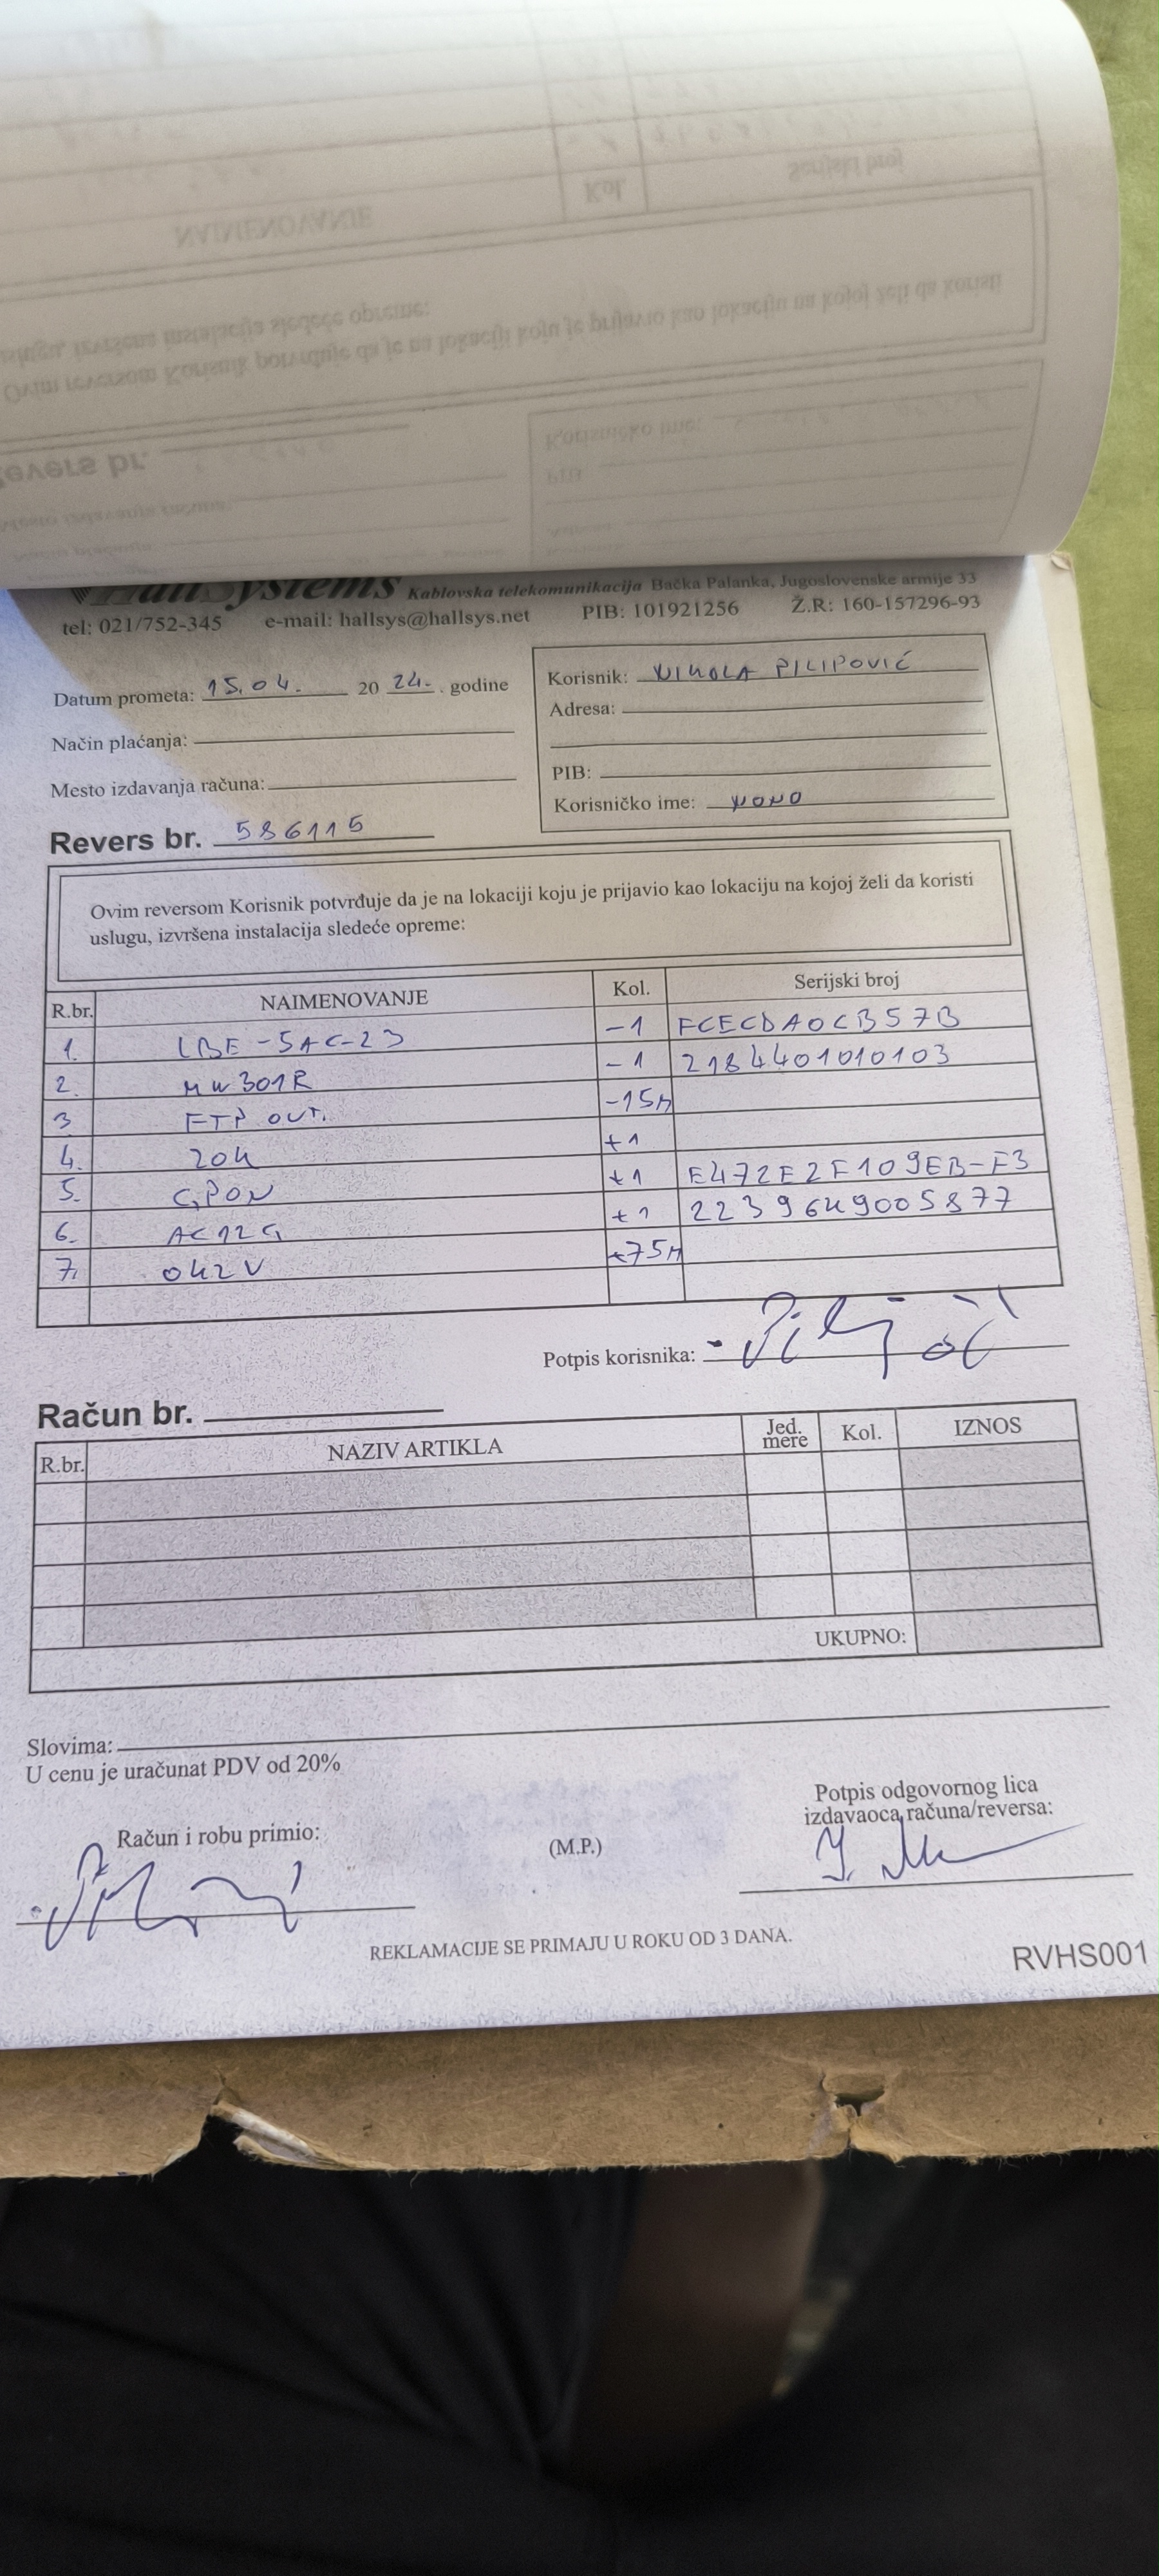 HallSystems Kablovska telekomunikacija Bačka Palanka, Jugoslovenske armije 33
tel: 021/752-345 e-mail: hallsys@hallsys.net PIB: 101921256 Ž.R: 160-157296-93
Datum prometa: 15.04. 20 24. . godine
Način plaćanja:
Mesto izdavanja računa:
Korisnik: NIKOLA PILIPOVIĆ
Adresa:
PIB:
Korisničko ime: NONO
Revers br. 586115
Ovim reversom Korisnik potvrđuje da je na lokaciji koju je prijavio kao lokaciju na kojoj želi da koristi
uslugu, izvršena instalacija sledeće opreme:
R.br. NAIMENOVANJE Kol. Serijski broj
1. LBE-5AC-23 -1 FCECDA0CB57B
2. MW301R -1 2184401010103
3 FTP OUT. -15M
4. ZOK +1
5. GPON +1 E472E2F109EB-F3
6. AC12G +1 22396K9005877
7. OK2V +75M
Potpis korisnika:
Račun br.
R.br. NAZIV ARTIKLA Jed. mere Kol. IZNOS
UKUPNO:
Slovima:
U cenu je uračunat PDV od 20%
Račun i robu primio:
(M.P.)
Potpis odgovornog lica
izdavaoca računa/reversa:
REKLAMACIJE SE PRIMAJU U ROKU OD 3 DANA.
RVHS001